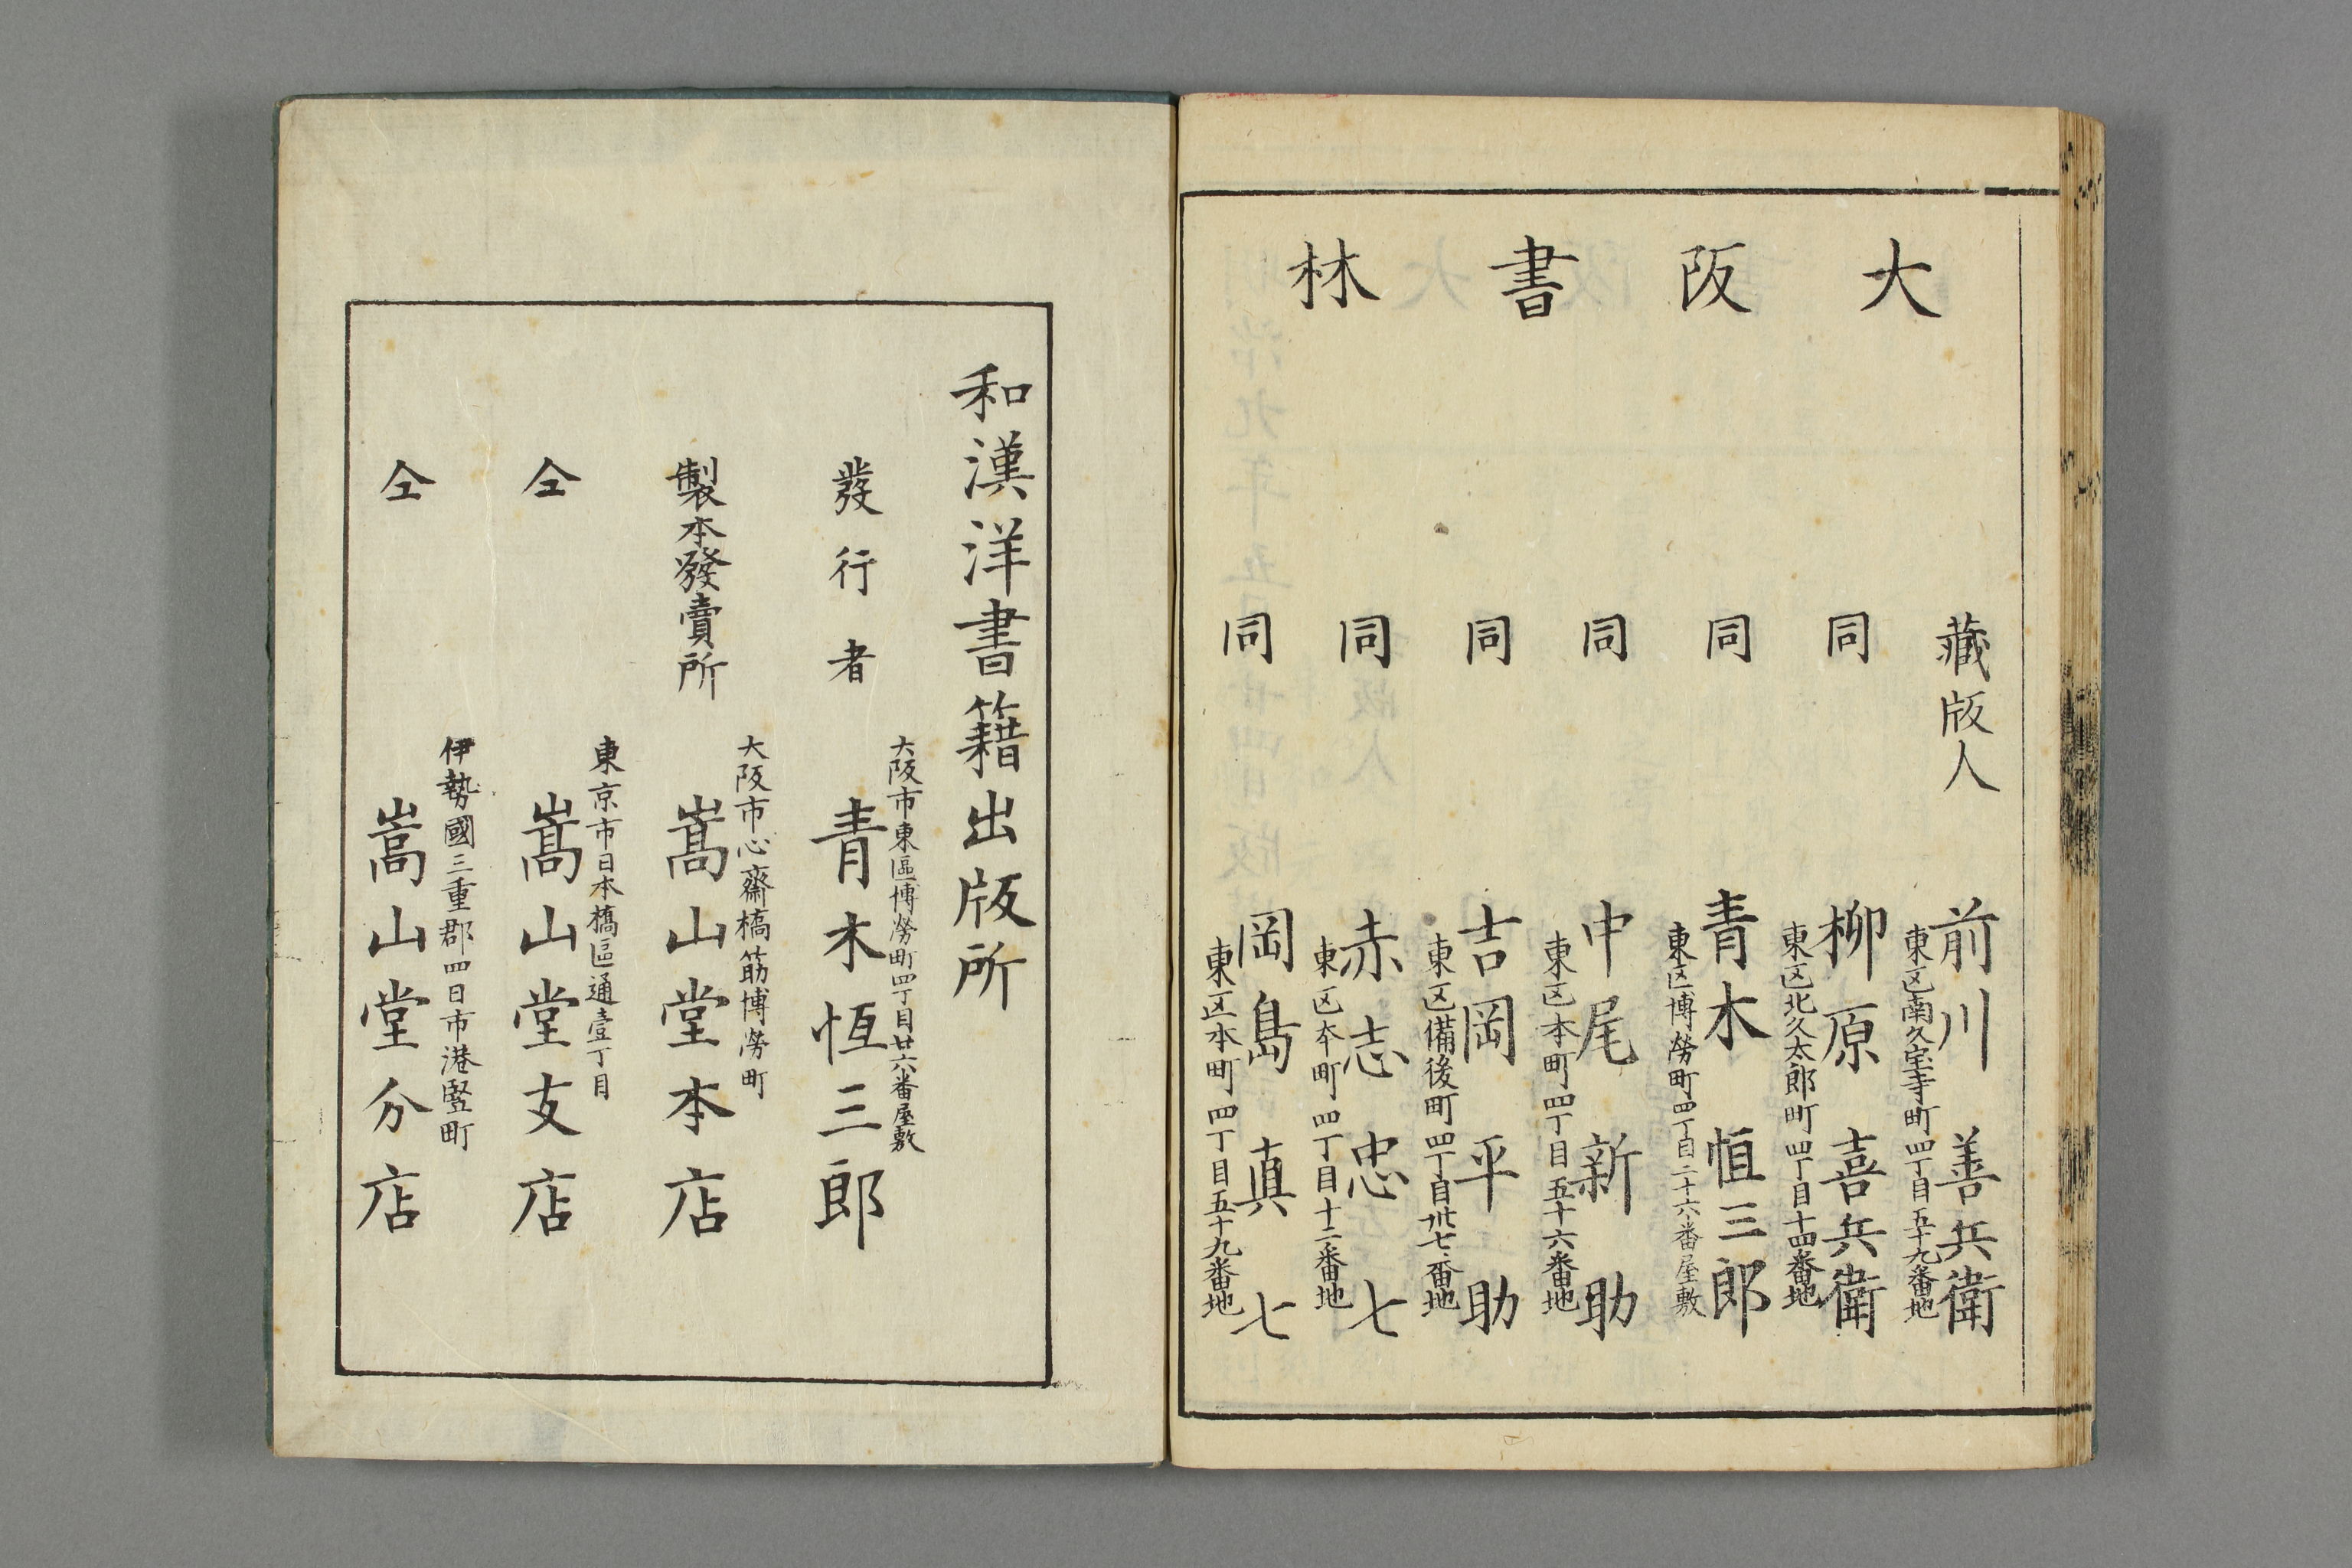 大阪書林
藏版人 前川善兵衛
東区南久宝寺町四丁目五十九番地
同 柳原喜兵衛
東区北久太郎町四丁目十四番地
同 青木恒三郎
東区博勞町四丁目二十六番屋敷
同 中尾新助
東区本町四丁目五十六番地
同 吉岡平助
東区備後町四丁目卅七番地
同 赤志忠七
東区本町四丁目十二番地
同 岡島真七
東区本町四丁目五十九番地
和漢洋書籍出版所
大阪市東區博勞町四丁目廿六番屋敷
發行者 青木恒三郎
大阪市心齋橋筋博勞町
製本發賣所 嵩山堂本店
東京市日本橋區通壹丁目
仝 嵩山堂支店
伊勢國三重郡四日市港竪町
仝 嵩山堂分店